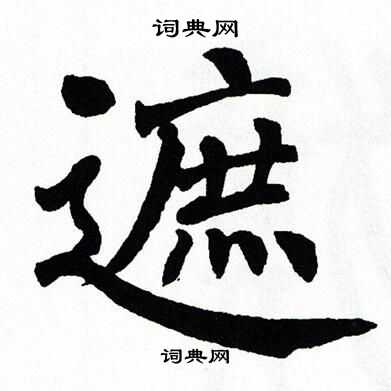 词典网
遮
词典网